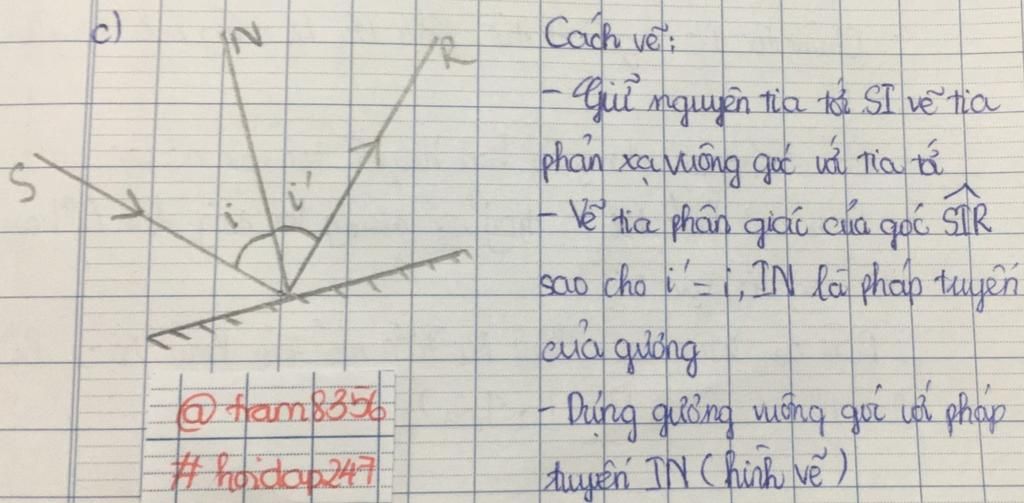 c)
N
R
S
i
i'
@ tram8356
# hoidap247
Cách vẽ:
- Giữ nguyên tia tới SI vẽ tia
phản xạ vuông góc với tia tớ
- Vẽ tia phân giác của góc SIR
sao cho i' = i, IN là pháp tuyến
của gương
- Dựng gương vuông gói với pháp
tuyến IN (hình vẽ)